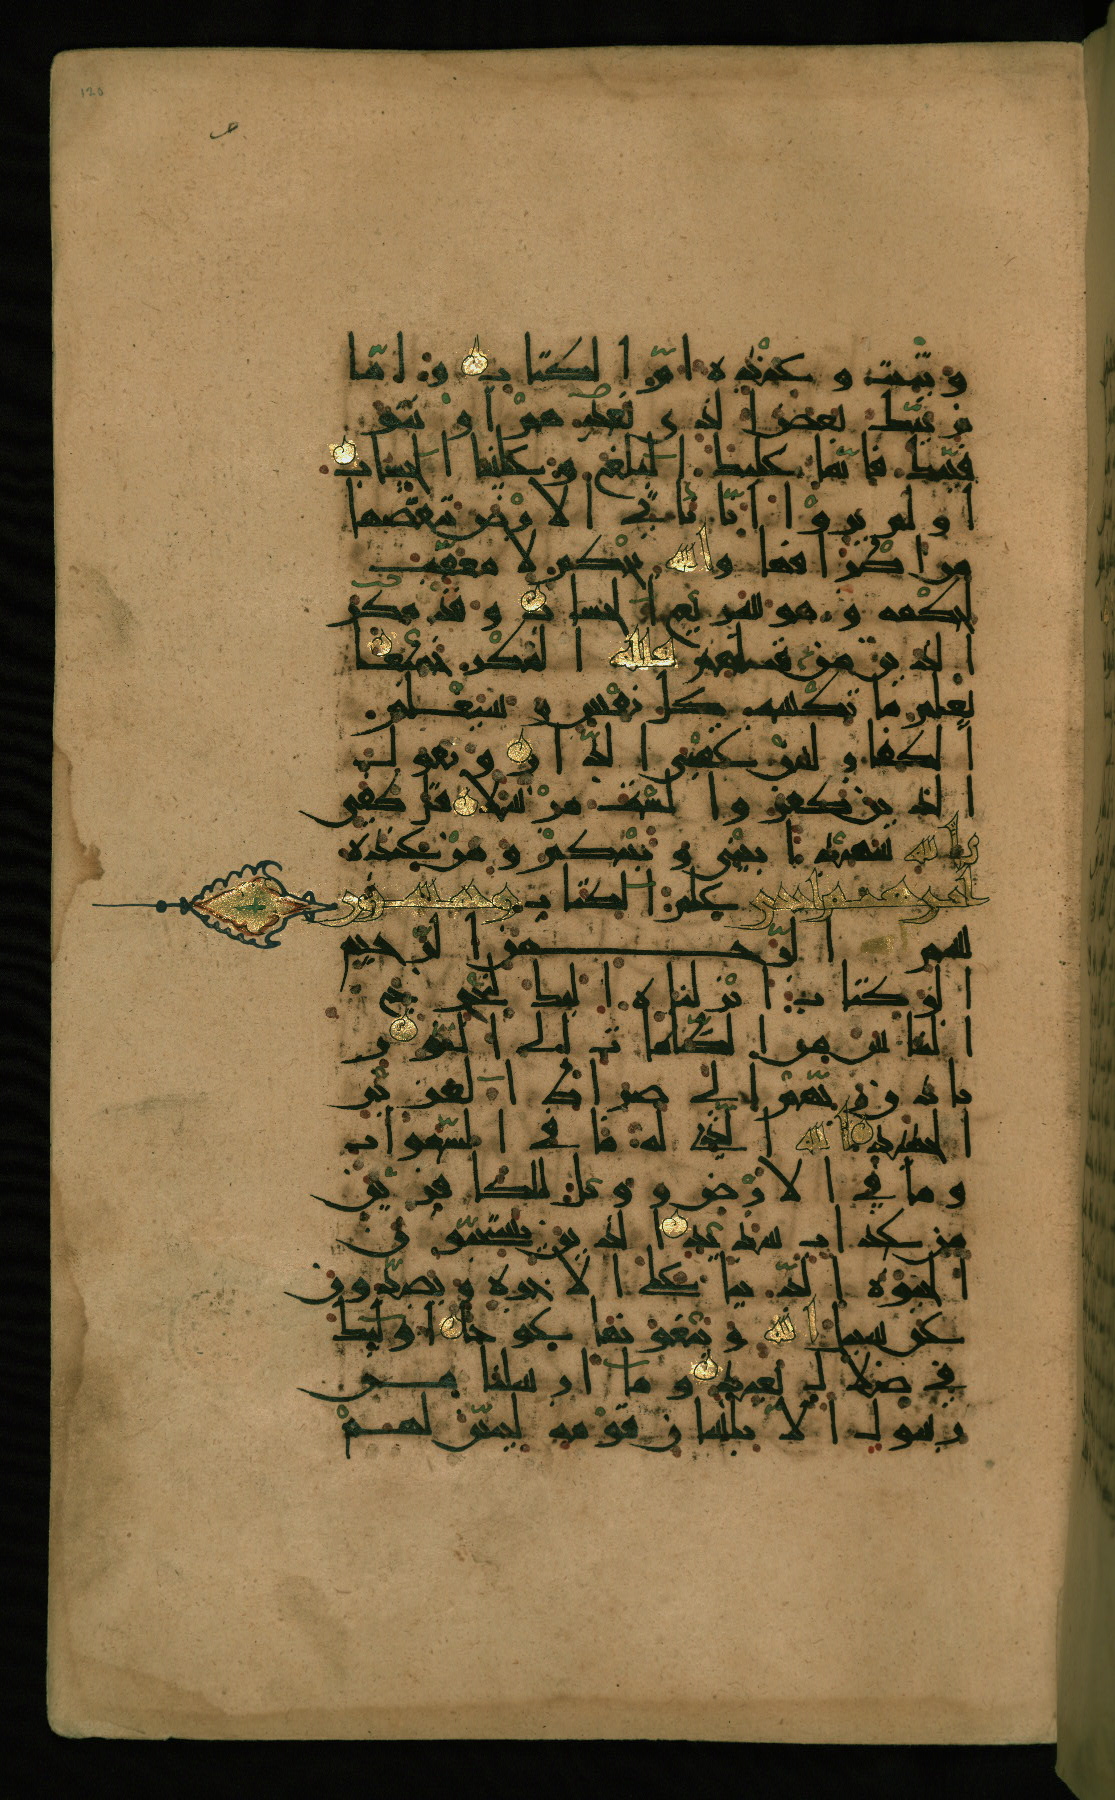 120
ص
ويثبت وعنده ام الكتاب و اما
نرينك بعض الذي نعدهم او نتو
فينك فانما عليك البلغ وعلينا الحساب
اولم يروا انا نا تي الارض ننقصها
من اطرافها والله يحكم لا معقب
لحكمه وهو سريع الحساب وقد مكر
الذين من قبلهم فلله المكر جميعا
يعلم ما تكسب كل نفس و سيعلم
الكفار لمن عقبى الدار ويقول
الذين كفروا لست مرسلا قل كفى
بالله شهيدا بيني و بينكم و من عنده
علم الكتاب
بسم الله الرحمن الرحيم
الر كتاب انزلناه اليك لتخرج
الناس من الظلمات الى النور
باذن ربهم الى صراط العزيز
الحميد الله الذي له ما في السموات
وما في الارض و ويل للكافرين
من عذاب شديد الذين يستحبون
الحيوة الدنيا على الاخرة ويصدون
عن سبيل الله و يبغونها عوجا اولئك
في ضلال بعيد و ما ارسلنا من
رسول الا بلسان قومه ليبين لهم